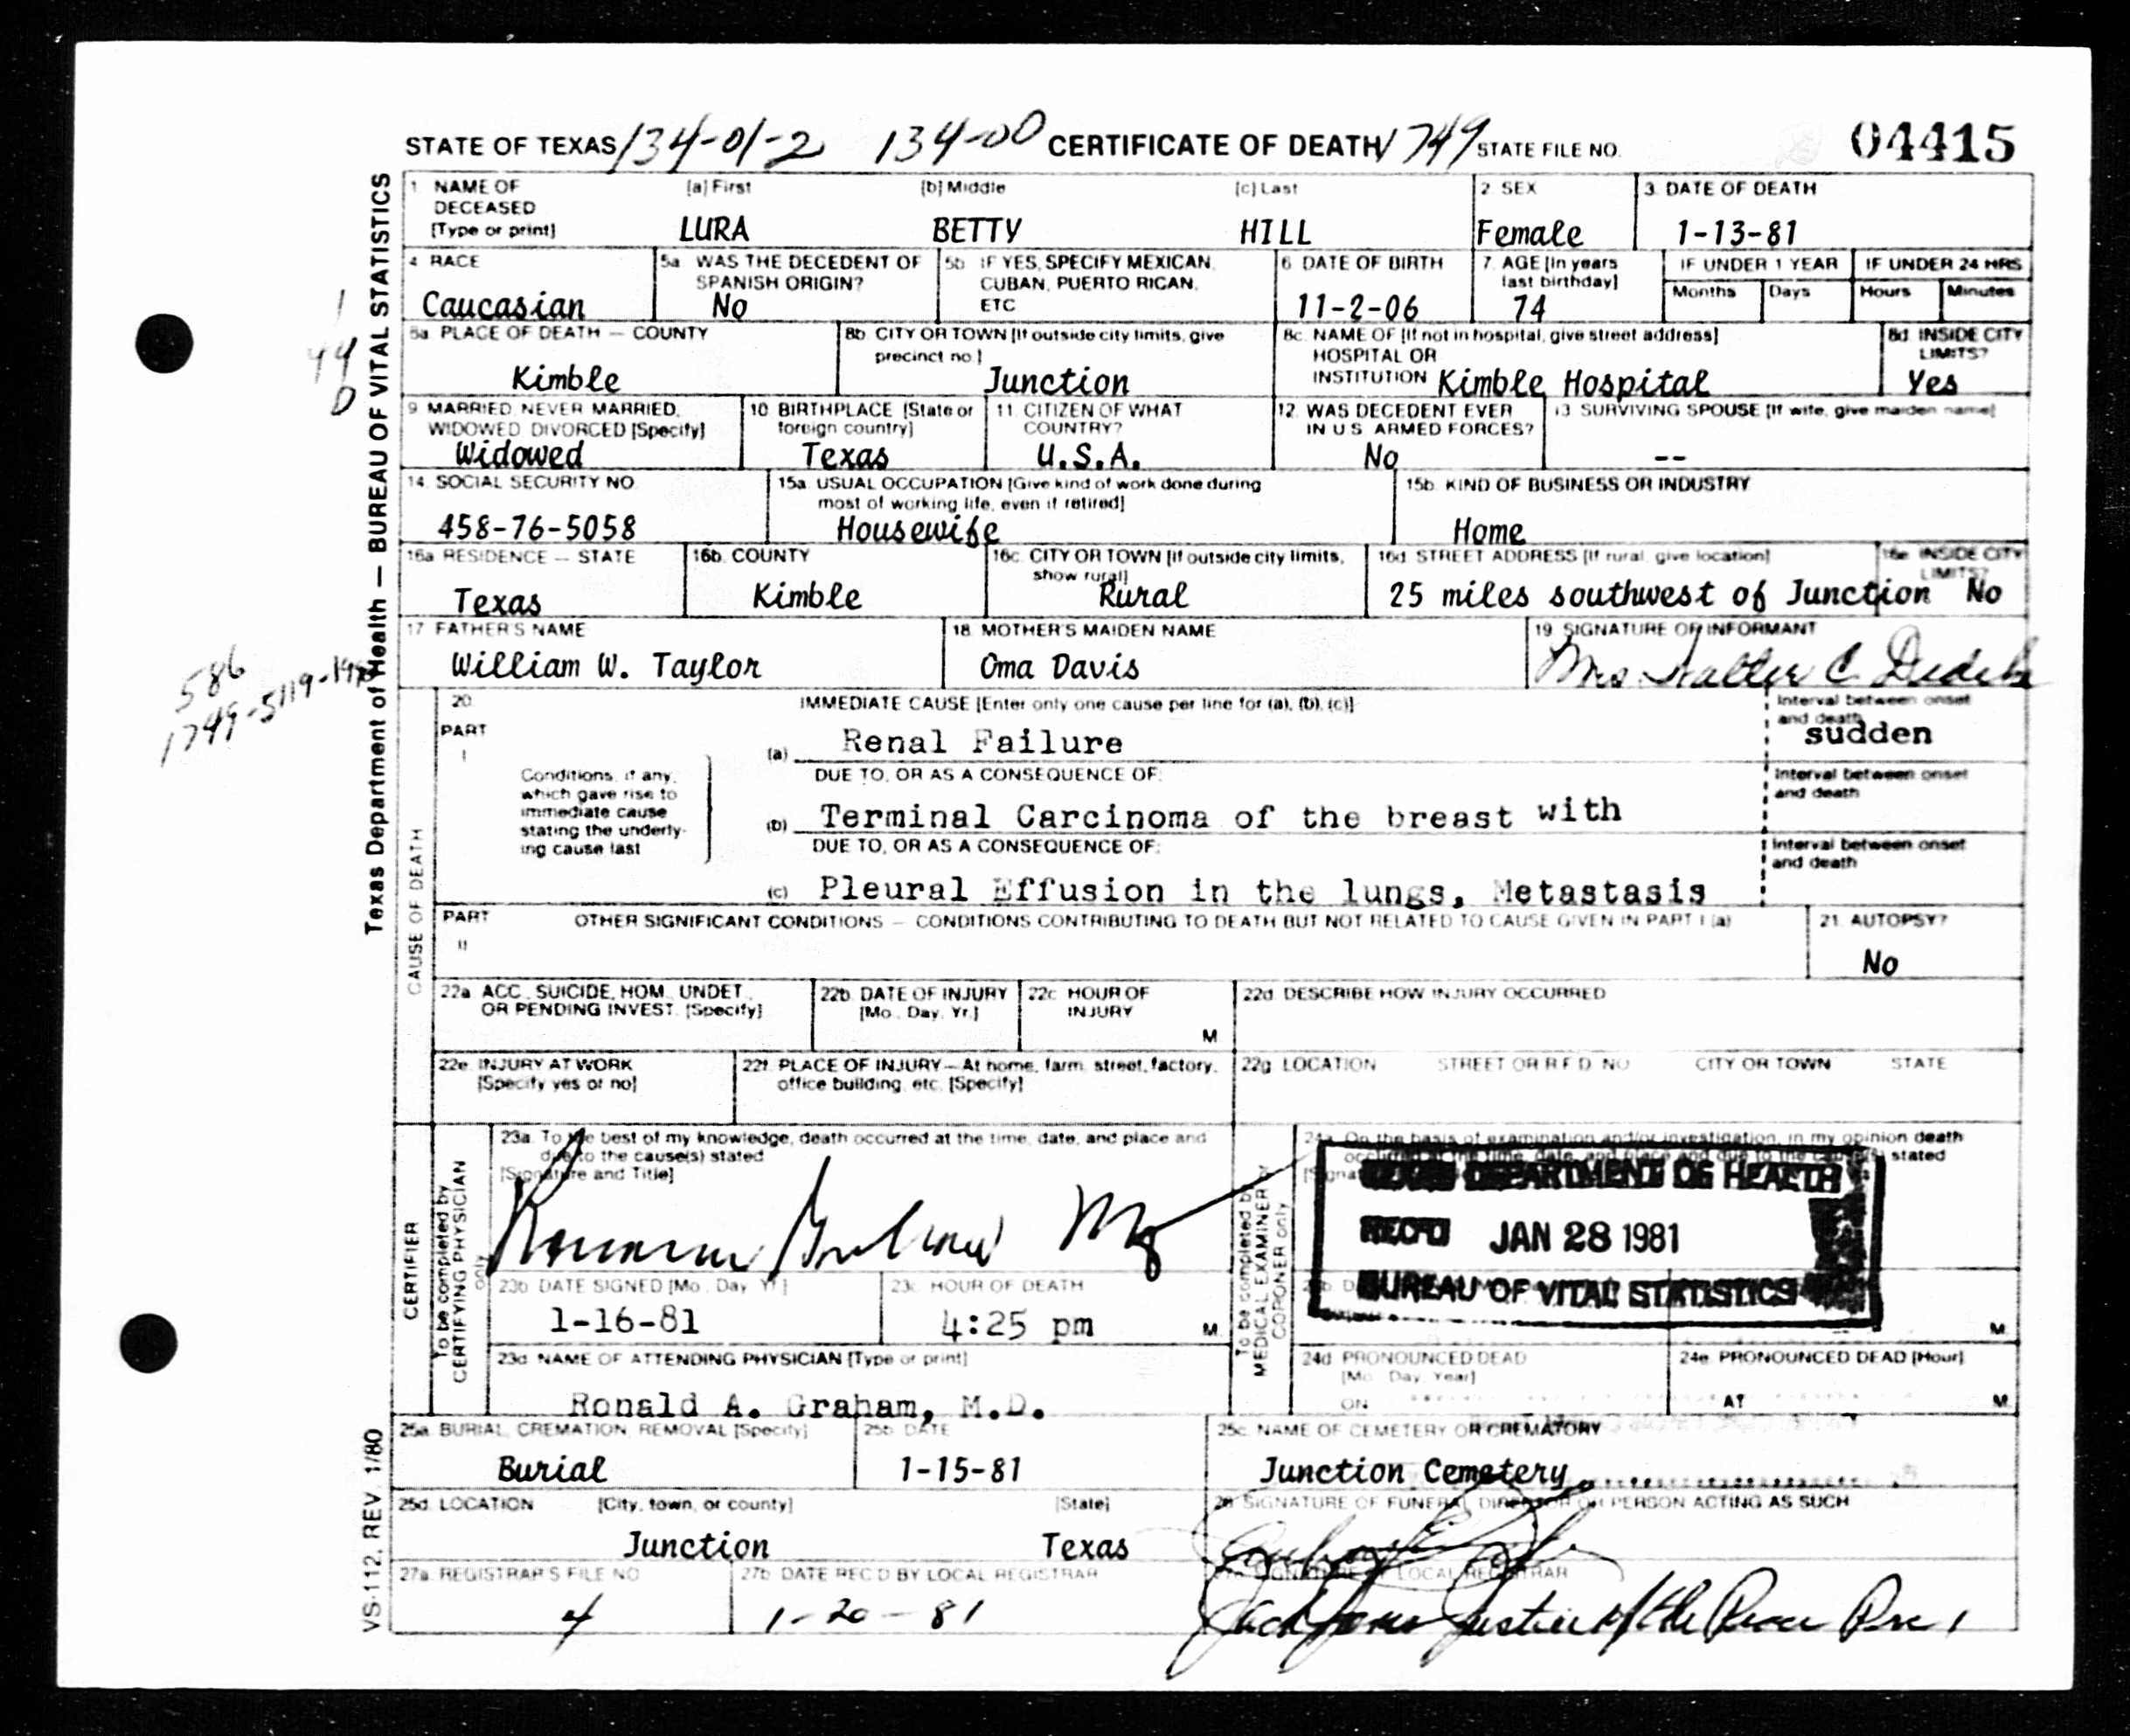 STATE OF TEXAS 134-01-2 134-00 CERTIFICATE OF DEATH 1749 STATE FILE NO. 04415
Texas Department of Health — BUREAU OF VITAL STATISTICS
1. NAME OF DECEASED [Type or print] [a] First [b] Middle [c] Last 2. SEX 3. DATE OF DEATH
LURA BETTY HILL Female 1-13-81
4. RACE 5a. WAS THE DECEDENT OF SPANISH ORIGIN? 5b. IF YES, SPECIFY MEXICAN, CUBAN, PUERTO RICAN, ETC 6. DATE OF BIRTH 7. AGE [In years last birthday] IF UNDER 1 YEAR IF UNDER 24 HRS
Months Days Hours Minutes
Caucasian No 11-2-06 74
8a. PLACE OF DEATH — COUNTY 8b. CITY OR TOWN [If outside city limits, give precinct no.] 8c. NAME OF [If not in hospital, give street address] HOSPITAL OR INSTITUTION 8d. INSIDE CITY LIMITS?
Kimble Junction Kimble Hospital Yes
9. MARRIED, NEVER MARRIED, WIDOWED, DIVORCED [Specify] 10. BIRTHPLACE [State or foreign country] 11. CITIZEN OF WHAT COUNTRY? 12. WAS DECEDENT EVER IN U.S. ARMED FORCES? 13. SURVIVING SPOUSE [If wife, give maiden name]
Widowed Texas U.S.A. No --
14. SOCIAL SECURITY NO. 15a. USUAL OCCUPATION [Give kind of work done during most of working life, even if retired] 15b. KIND OF BUSINESS OR INDUSTRY
458-76-5058 Housewife Home
16a. RESIDENCE — STATE 16b. COUNTY 16c. CITY OR TOWN [If outside city limits, show rural] 16d. STREET ADDRESS [If rural, give location] 16e. INSIDE CITY LIMITS?
Texas Kimble Rural 25 miles southwest of Junction No
17. FATHER'S NAME 18. MOTHER'S MAIDEN NAME 19. SIGNATURE OF INFORMANT
William W. Taylor Oma Davis Mrs. Walter C.
586
CAUSE OF DEATH
20. IMMEDIATE CAUSE [Enter only one cause per line for (a), (b), (c)] Interval between onset and death
PART I
(a) Renal Failure sudden
Conditions, if any, which gave rise to immediate cause stating the underlying cause last
DUE TO, OR AS A CONSEQUENCE OF: Interval between onset and death
(b) Terminal Carcinoma of the breast with
DUE TO, OR AS A CONSEQUENCE OF: Interval between onset and death
(c) Pleural Effusion in the lungs, Metastasis
PART II OTHER SIGNIFICANT CONDITIONS — CONDITIONS CONTRIBUTING TO DEATH BUT NOT RELATED TO CAUSE GIVEN IN PART I (a) 21. AUTOPSY?
No
22a. ACC., SUICIDE, HOM., UNDET., OR PENDING INVEST. [Specify] 22b. DATE OF INJURY [Mo., Day, Yr.] 22c. HOUR OF INJURY M. 22d. DESCRIBE HOW INJURY OCCURRED
22e. INJURY AT WORK [Specify yes or no] 22f. PLACE OF INJURY — At home, farm, street, factory, office building, etc. [Specify] 22g. LOCATION STREET OR R.F.D. NO. CITY OR TOWN STATE
CERTIFIER
To be completed by CERTIFYING PHYSICIAN only
23a. To the best of my knowledge, death occurred at the time, date, and place and due to the cause(s) stated
[Signature and Title]
To be completed by MEDICAL EXAMINER or CORONER only
24a. On the basis of examination and/or investigation, in my opinion death occurred at the time, date, and place and due to the cause(s) stated
TEXAS DEPARTMENT OF HEALTH
REC'D JAN 28 1981
BUREAU OF VITAL STATISTICS
23b. DATE SIGNED [Mo., Day, Yr.] 23c. HOUR OF DEATH
1-16-81 4:25 pm M. M.
23d. NAME OF ATTENDING PHYSICIAN [Type or print] 24d. PRONOUNCED DEAD [Mo., Day, Year] 24e. PRONOUNCED DEAD [Hour]
Ronald A. Graham, M.D. ON AT M.
25a. BURIAL, CREMATION, REMOVAL [Specify] 25b. DATE 25c. NAME OF CEMETERY OR CREMATORY
Burial 1-15-81 Junction Cemetery
25d. LOCATION [City, town, or county] [State] 26. SIGNATURE OF FUNERAL DIRECTOR OR PERSON ACTING AS SUCH
Junction Texas
27a. REGISTRAR'S FILE NO. 27b. DATE REC'D BY LOCAL REGISTRAR 27c. SIGNATURE OF LOCAL REGISTRAR
4 1-20-81 Justice of the Peace Prc 1
VS-112, REV. 1/80